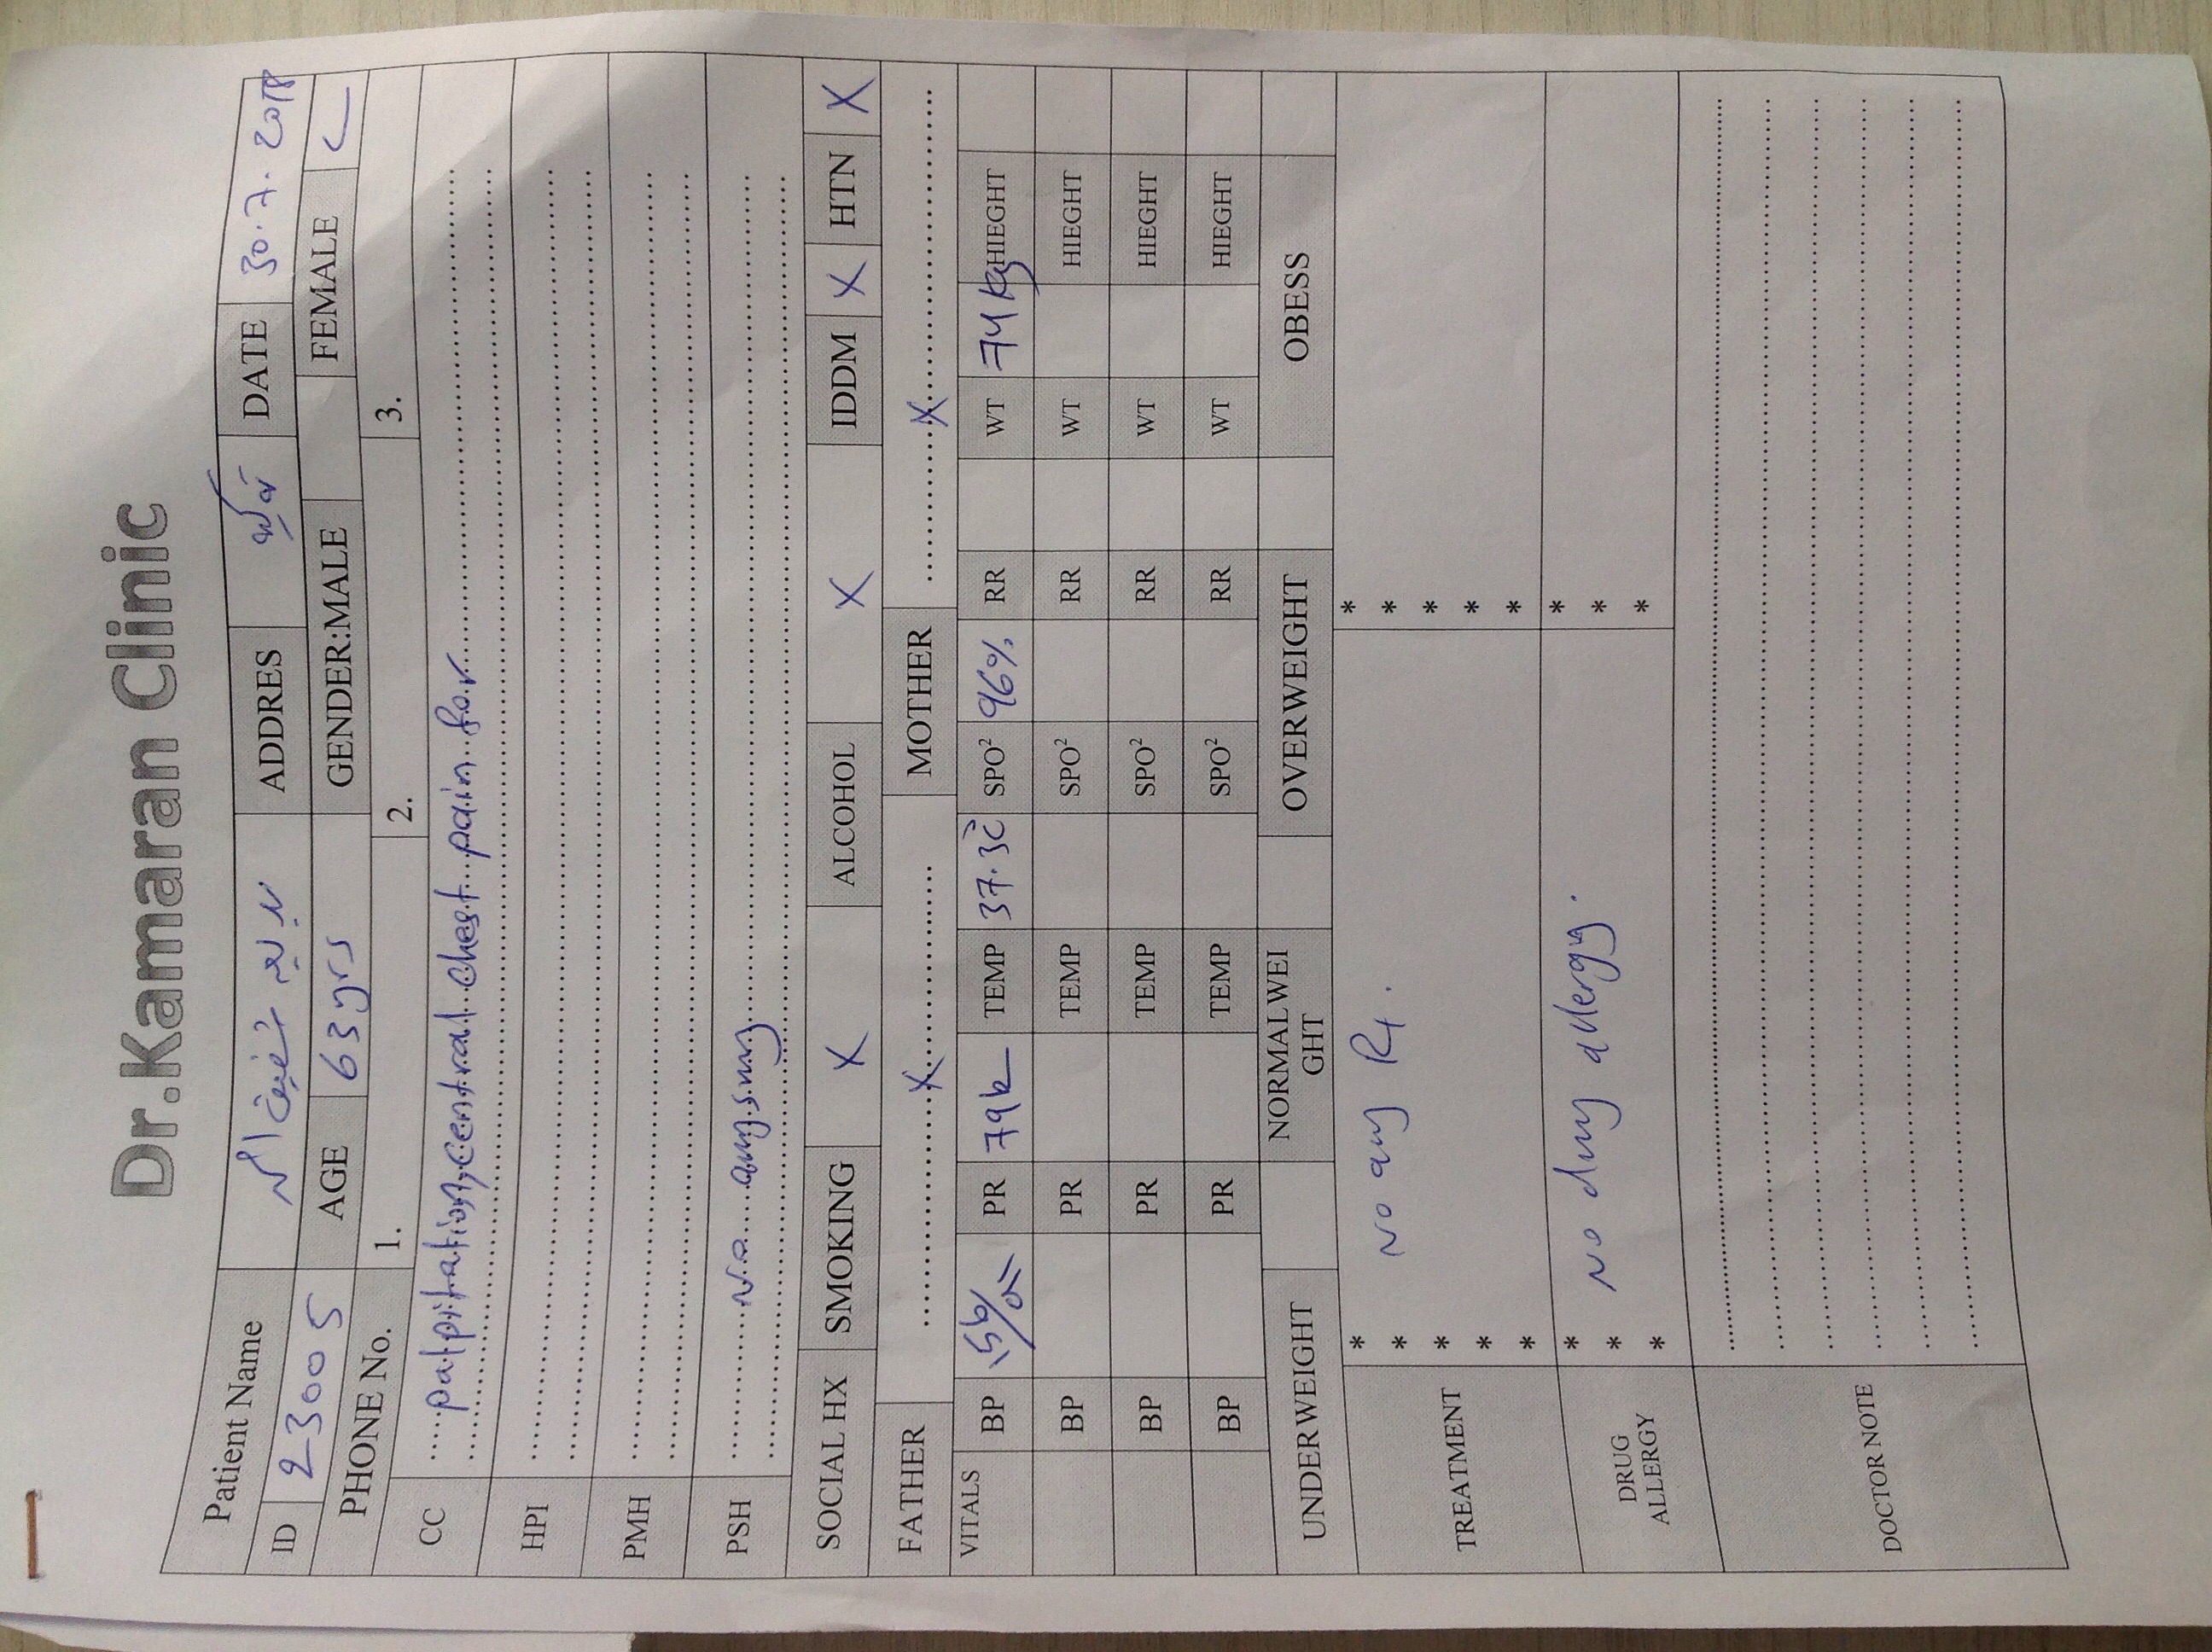 Dr.Kamaran Clinic
Patient Name ADDRES DATE 30.7.2018
ID 23005 AGE 63 yrs GENDER:MALE FEMALE
PHONE No. 1. 2. 3.
CC palpitation, central chest pain for
HPI
PMH
PSH no any surg
SOCIAL HX SMOKING X ALCOHOL X IDDM X HTN X
FATHER X MOTHER X
VITALS BP PR TEMP 37.3C SPO² 96% RR WT 74 kg HIEGHT
BP PR TEMP SPO² RR WT HIEGHT
BP PR TEMP SPO² RR WT HIEGHT
BP PR TEMP SPO² RR WT HIEGHT
UNDERWEIGHT NORMAL WEI GHT OVERWEIGHT OBESS
TREATMENT
* no any Rx. *
* *
* *
* *
* *
DRUG ALLERGY
* no drug allergy. *
* *
* *
DOCTOR NOTE